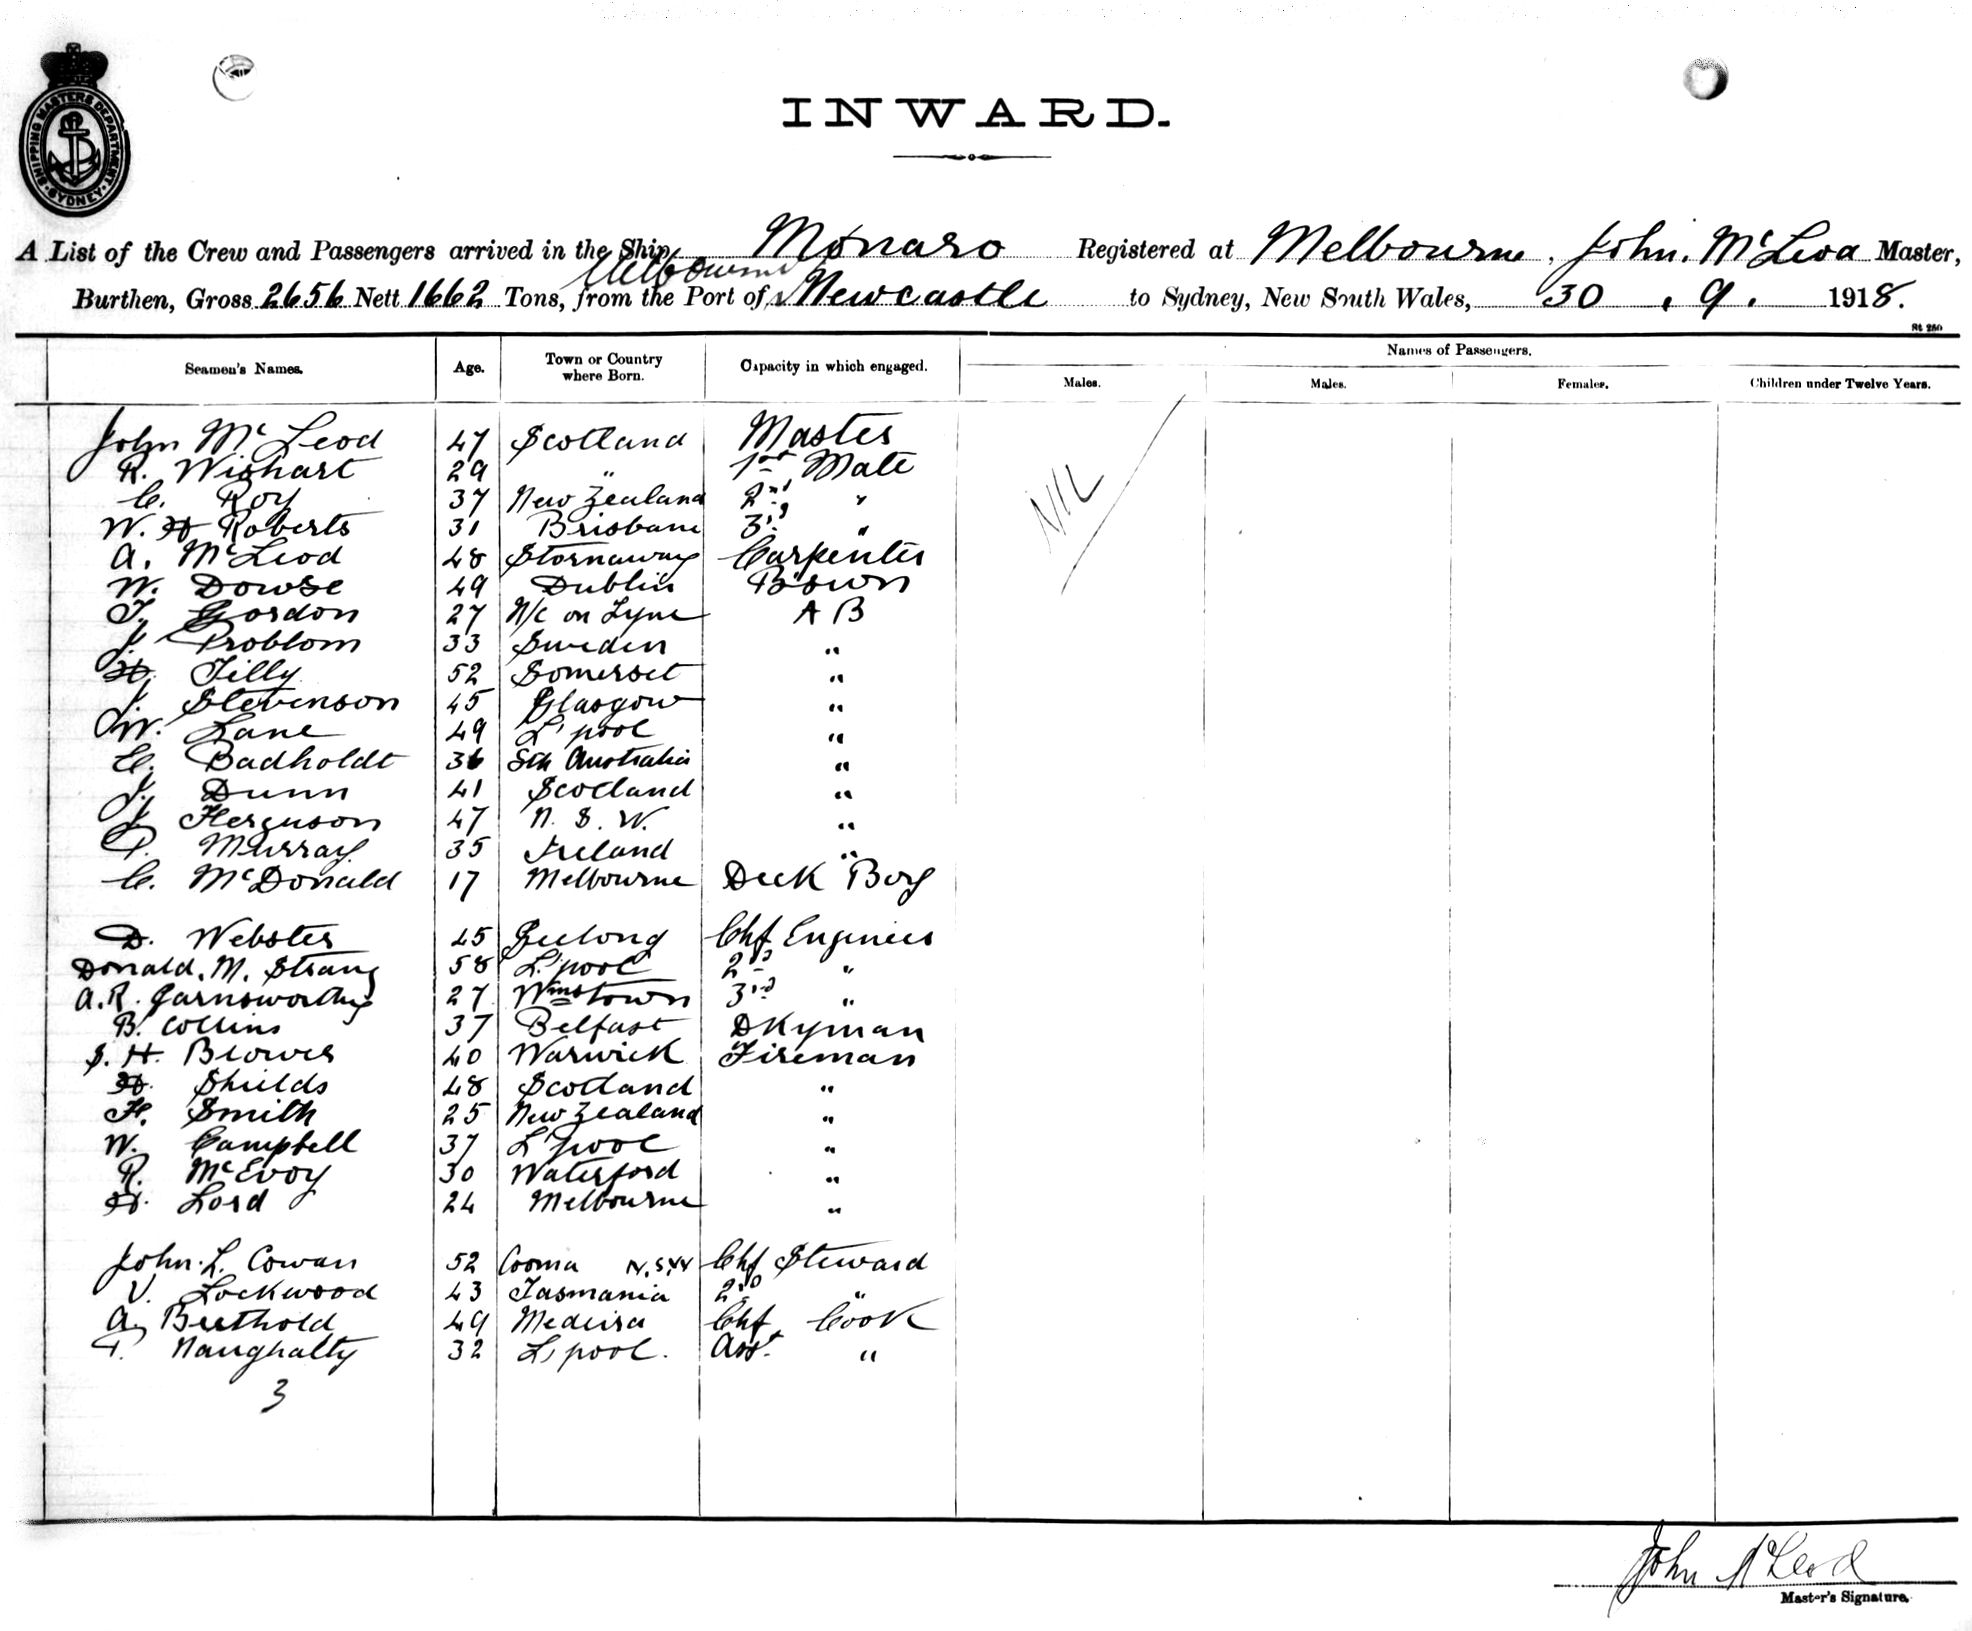 SHIPPING MASTERS DEPARTMENT · SYDNEY ·
INWARD.
A List of the Crew and Passengers arrived in the Ship Monaro Registered at Melbourne, John. McLeod Master,
Melbourne
Burthen, Gross 2656 Nett 1662 Tons, from the Port of Newcastle to Sydney, New South Wales, 30 . 9 . 1918.
St 250
Seamen's Names. Age. Town or Country where Born. Capacity in which engaged. Names of Passengers.
Males. Males. Females. Children under Twelve Years.
John McLeod 47 Scotland Master
R. Wishart 29 " 1st Mate
C. Roy 37 New Zealand 2nd "
W. H Roberts 31 Brisbane 3rd "
A. McLeod 48 Stornaway Carpenter
W. Dowse 49 Dublin B'swn
T. Gordon 27 N/c on Tyne A B
J. Problom 33 Sweden "
H. Tilly 52 Somerset "
J. Stevenson 45 Glasgow "
W. Lane 49 L'pool "
C. Badholdt 36 Sth Australia "
J. Dunn 41 Scotland "
J. Ferguson 47 N. S. W. "
P. Murray 35 Ireland "
C. McDonald 17 Melbourne Deck Boy
NIL
D. Webster 45 Geelong Chf Engineer
Donald. M. Strang 58 L'pool 2nd "
A.R. Garnsworthy 27 Wmstown 3rd "
B. Collins 37 Belfast Dkyman
S. H. Blower 40 Warwick Fireman
H. Shields 48 Scotland "
F. Smith 25 New Zealand "
W. Campbell 37 L'pool "
R. McEvoy 30 Waterford "
H. Lord 24 Melbourne "
John. L. Cowan 52 Cooma N.S.W Chf Steward
V. Lockwood 43 Tasmania 2nd "
A. Berthold 49 Medeira Chf Cook
P. Naughalty 32 L'pool. Asst. "
3
John McLeod
Master's Signature.